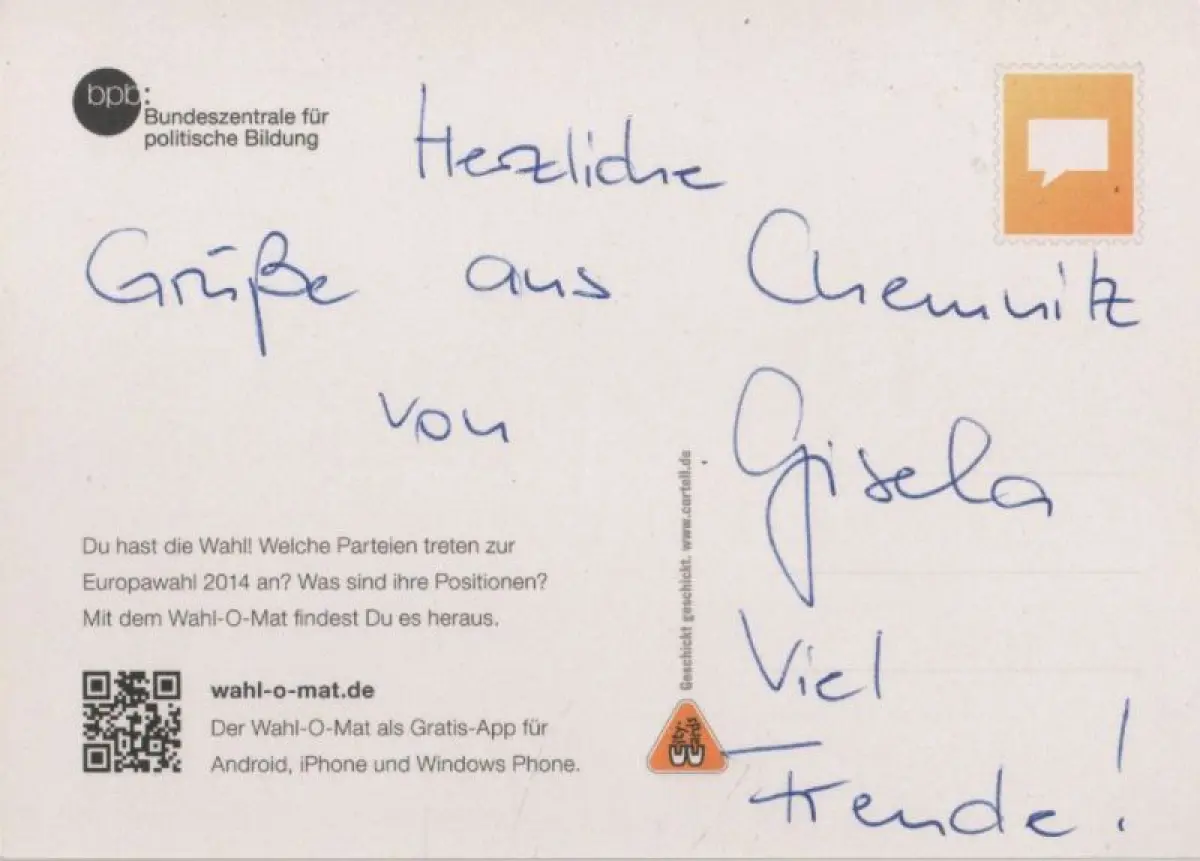 bpb:
Bundeszentrale für
politische Bildung
Herzliche
Grüße aus Chemnitz
von Gisela
Viel
Freude!
Du hast die Wahl! Welche Parteien treten zur
Europawahl 2014 an? Was sind ihre Positionen?
Mit dem Wahl-O-Mat findest Du es heraus.
wahl-o-mat.de
Der Wahl-O-Mat als Gratis-App für
Android, iPhone und Windows Phone.
Geschickt geschickt. www.cartell.de
City Cards